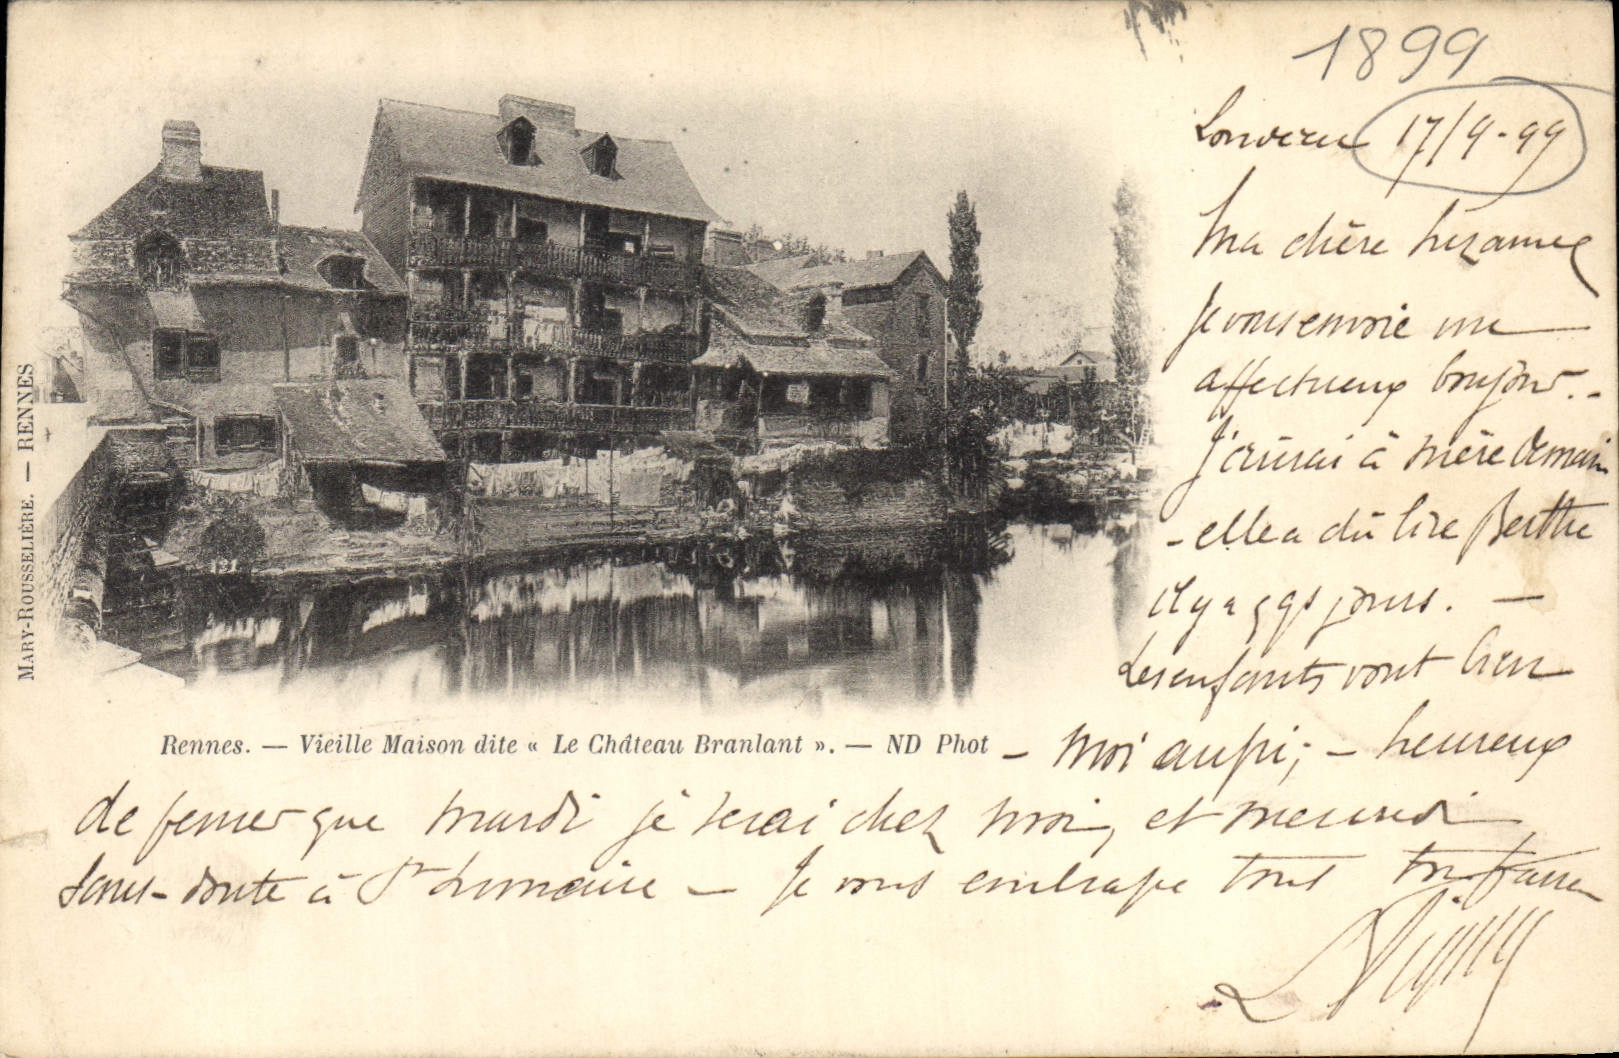 1899
17/9-99
Ma chère
Je vous envoie un
affectueux bonjour. -
J'écrirai à mère demain
- elle a dû lire Berthe
il y a qqs jours. —
Les enfants vont bien
- Moi aussi; - heureux
de penser que mardi je serai chez moi, et mercredi
sans-doute à St Lunaire — Je vous embrasse tous
Rennes. — Vieille Maison dite « Le Château Branlant ». — ND Phot
MARY-ROUSSELIÈRE. — RENNES
131